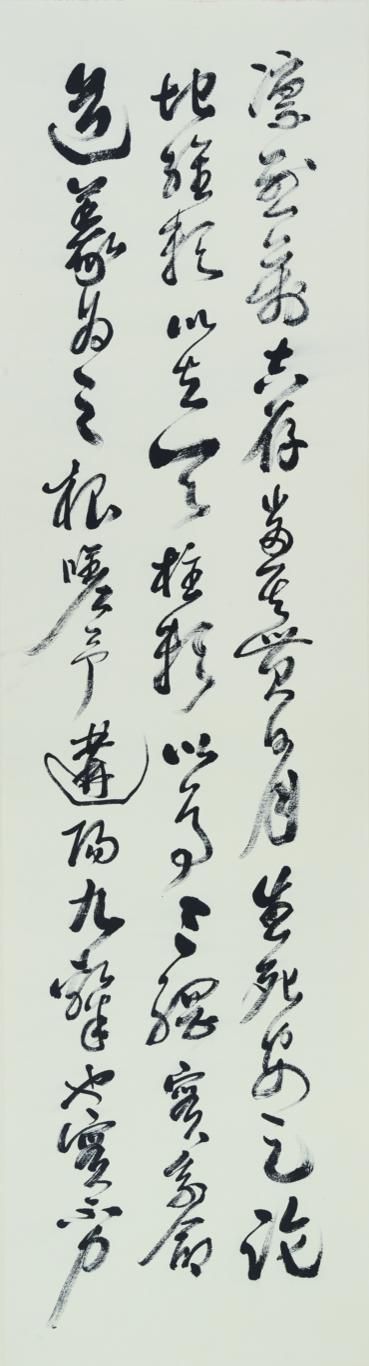 凛烈萬古存當其貫日月生死安足論
地維賴以立天柱賴以尊三綱實系命
道義為之根嗟予遘陽九隸也實不力